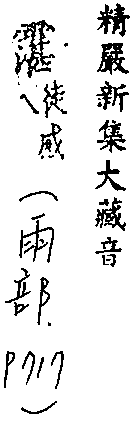 精嚴新集大藏音
徒感（雨部. P717）